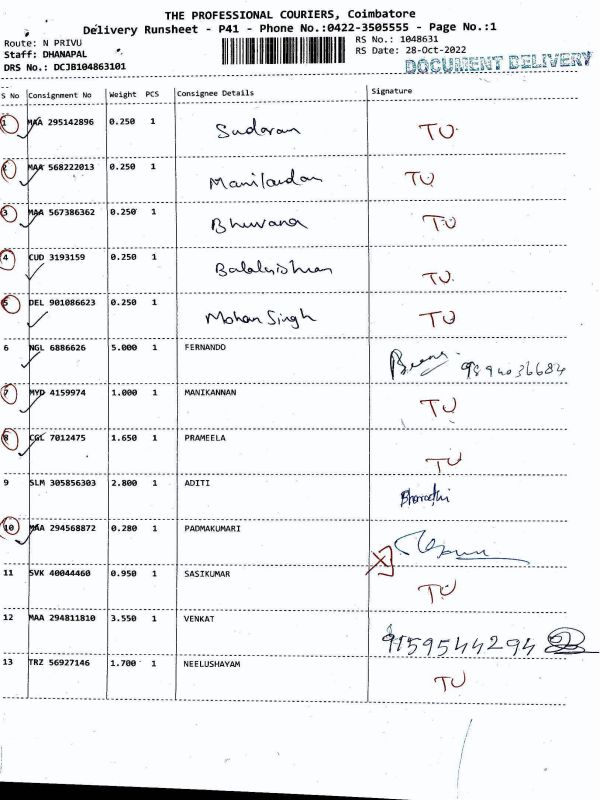 THE PROFESSIONAL COURIERS, Coimbatore
Delivery Runsheet - P41 - Phone No.:0422-3505555 - Page No.:1
Route: N PRIVU
Staff: DHANAPAL
DRS No.: DCJB104863101
RS No.: 1048631
RS Date: 28-Oct-2022
DOCUMENT DELIVERY
S No Consignment No Weight PCS Consignee Details Signature
1 MAA 295142896 0.250 1 Sudaran TU
2 MAA 568222013 0.250 1 Manikandan TU
3 MAA 567386362 0.250 1 Bhuvana TU
4 CUD 3193159 0.250 1 Balakrishnan TU
5 DEL 901086623 0.250 1 Mohan Singh TU
6 NGL 6886626 5.000 1 FERNANDO 9894036684
7 MYD 4159974 1.000 1 MANIKANNAN TU
8 CGL 7012475 1.650 1 PRAMEELA TU
9 SLM 305856303 2.800 1 ADITI Bharathi
10 MAA 294568872 0.280 1 PADMAKUMARI
11 SVK 40044460 0.950 1 SASIKUMAR TU
12 MAA 294811810 3.550 1 VENKAT 9159544294
13 TRZ 56927146 1.700 1 NEELUSHAYAM TU